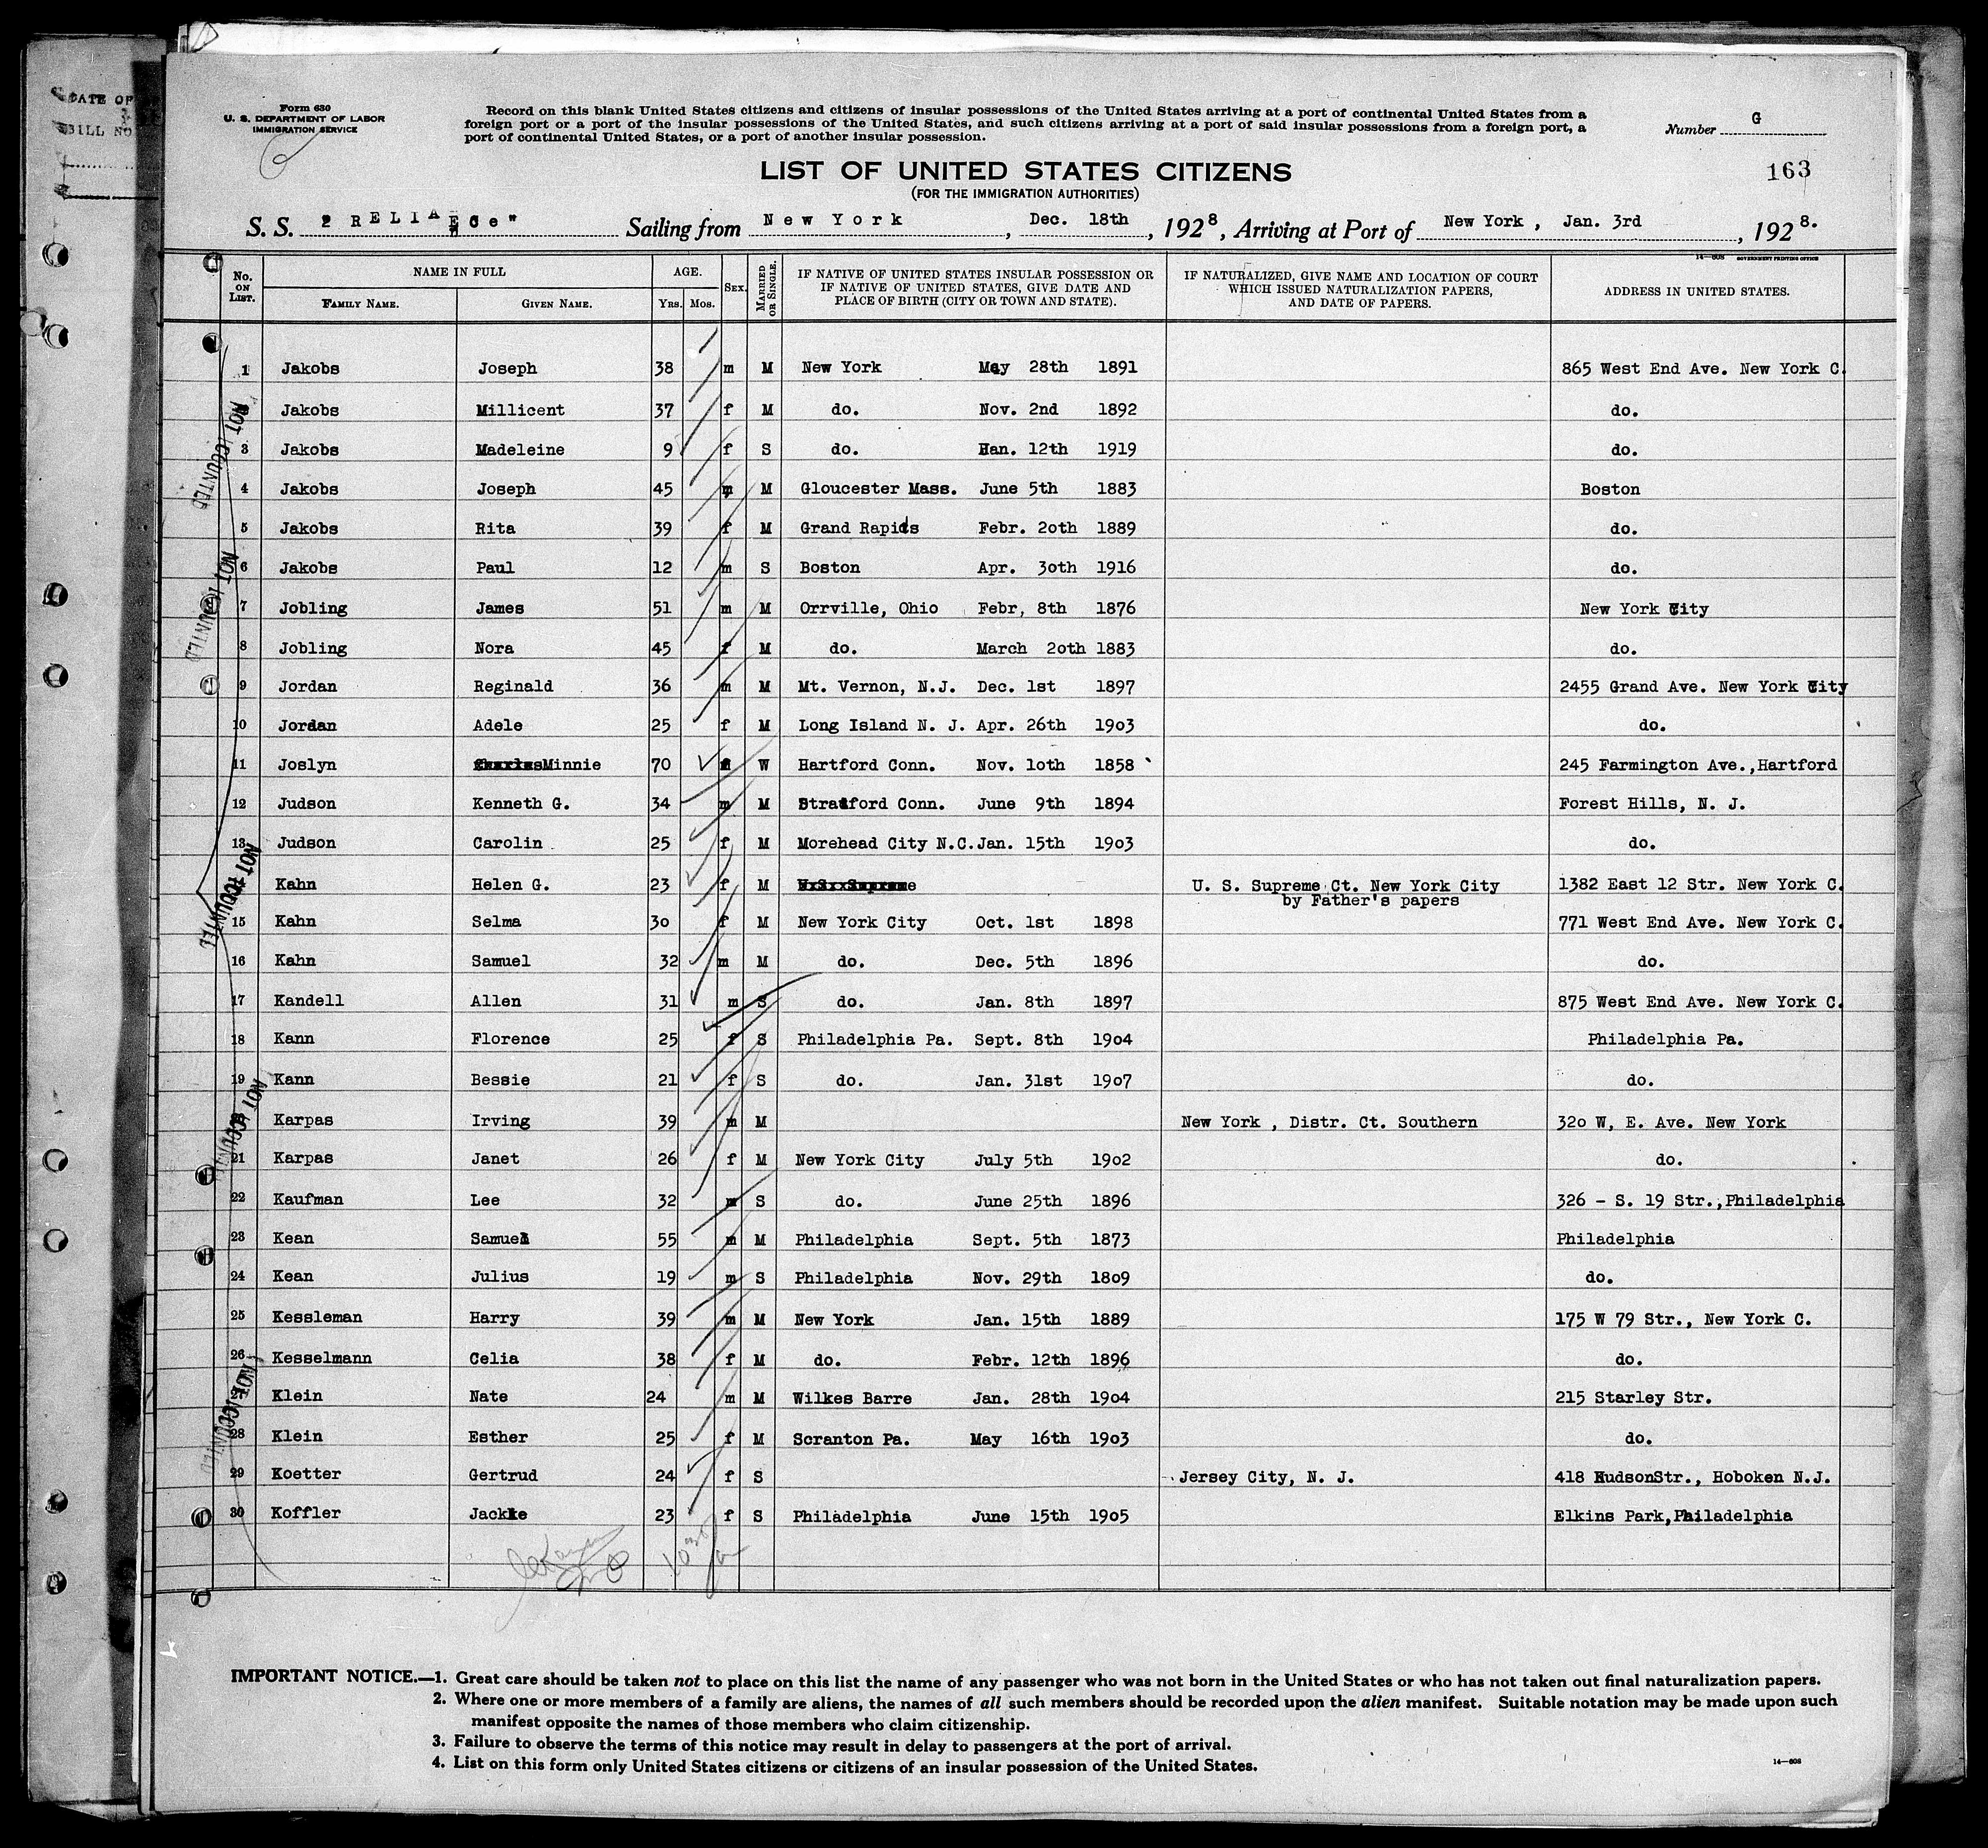 DATE OF
BILL NO
Form 630
U. S. DEPARTMENT OF LABOR
IMMIGRATION SERVICE
Record on this blank United States citizens and citizens of insular possessions of the United States arriving at a port of continental United States from a
foreign port or a port of the insular possessions of the United States, and such citizens arriving at a port of said insular possessions from a foreign port, a
port of continental United States, or a port of another insular possession.
Number G
163
LIST OF UNITED STATES CITIZENS
(FOR THE IMMIGRATION AUTHORITIES)
S. S. Sailing from New York, Dec. 18th, 1928, Arriving at Port of New York, Jan. 3rd, 1928.
14—608 GOVERNMENT PRINTING OFFICE
No. ON LIST. NAME IN FULL FAMILY NAME. GIVEN NAME. AGE. Yrs. Mos. SEX. MARRIED OR SINGLE. IF NATIVE OF UNITED STATES INSULAR POSSESSION OR IF NATIVE OF UNITED STATES, GIVE DATE AND PLACE OF BIRTH (CITY OR TOWN AND STATE). IF NATURALIZED, GIVE NAME AND LOCATION OF COURT WHICH ISSUED NATURALIZATION PAPERS, AND DATE OF PAPERS. ADDRESS IN UNITED STATES.
1 Jakobs Joseph 38 m M New York May 28th 1891 865 West End Ave. New York C.
Jakobs Millicent 37 f M do. Nov. 2nd 1892 do.
3 Jakobs Madeleine 9 f S do. Han. 12th 1919 do.
4 Jakobs Joseph 45 m M Gloucester Mass. June 5th 1883 Boston
5 Jakobs Rita 39 f M Grand Rapids Febr. 2oth 1889 do.
6 Jakobs Paul 12 m S Boston Apr. 3oth 1916 do.
7 Jobling James 51 m M Orrville, Ohio Febr, 8th 1876 New York City
8 Jobling Nora 45 f M do. March 2oth 1883 do.
9 Jordan Reginald 36 m M Mt. Vernon, N.J. Dec. 1st 1897 2455 Grand Ave. New York City
10 Jordan Adele 25 f M Long Island N. J. Apr. 26th 19o3 do.
11 Joslyn Minnie 70 W Hartford Conn. Nov. 1oth 1858 245 Farmington Ave.,Hartford
12 Judson Kenneth G. 34 m M Stratford Conn. June 9th 1894 Forest Hills, N. J.
13 Judson Carolin 25 f M Morehead City N.C. Jan. 15th 19o3 do.
Kahn Helen G. 23 f M U. S. Supreme Ct. New York City 1382 East 12 Str. New York C.
by Father's papers
15 Kahn Selma 3o f M New York City Oct. 1st 1898 771 West End Ave. New York C.
16 Kahn Samuel 32 m M do. Dec. 5th 1896 do.
17 Kandell Allen 31 m S do. Jan. 8th 1897 875 West End Ave. New York C.
18 Kann Florence 25 f S Philadelphia Pa. Sept. 8th 19o4 Philadelphia Pa.
19 Kann Bessie 21 f S do. Jan. 31st 19o7 do.
Karpas Irving 39 m M New York , Distr. Ct. Southern 32o W, E. Ave. New York
21 Karpas Janet 26 f M New York City July 5th 19o2 do.
22 Kaufman Lee 32 m S do. June 25th 1896 326 - S. 19 Str.,Philadelphia
23 Kean Samuel 55 m M Philadelphia Sept. 5th 1873 Philadelphia
24 Kean Julius 19 m S Philadelphia Nov. 29th 18o9 do.
25 Kessleman Harry 39 m M New York Jan. 15th 1889 175 W 79 Str., New York C.
26 Kesselmann Celia 38 f M do. Febr. 12th 1896 do.
27 Klein Nate 24 m M Wilkes Barre Jan. 28th 19o4 215 Starley Str.
28 Klein Esther 25 f M Scranton Pa. May 16th 19o3 do.
29 Koetter Gertrud 24 f S Jersey City, N. J. 418 HudsonStr., Hoboken N.J.
30 Koffler 23 f S Philadelphia June 15th 19o5 Elkins Park,Philadelphia
IMPORTANT NOTICE.—1. Great care should be taken not to place on this list the name of any passenger who was not born in the United States or who has not taken out final naturalization papers.
2. Where one or more members of a family are aliens, the names of all such members should be recorded upon the alien manifest. Suitable notation may be made upon such
manifest opposite the names of those members who claim citizenship.
3. Failure to observe the terms of this notice may result in delay to passengers at the port of arrival.
4. List on this form only United States citizens or citizens of an insular possession of the United States.
14—608